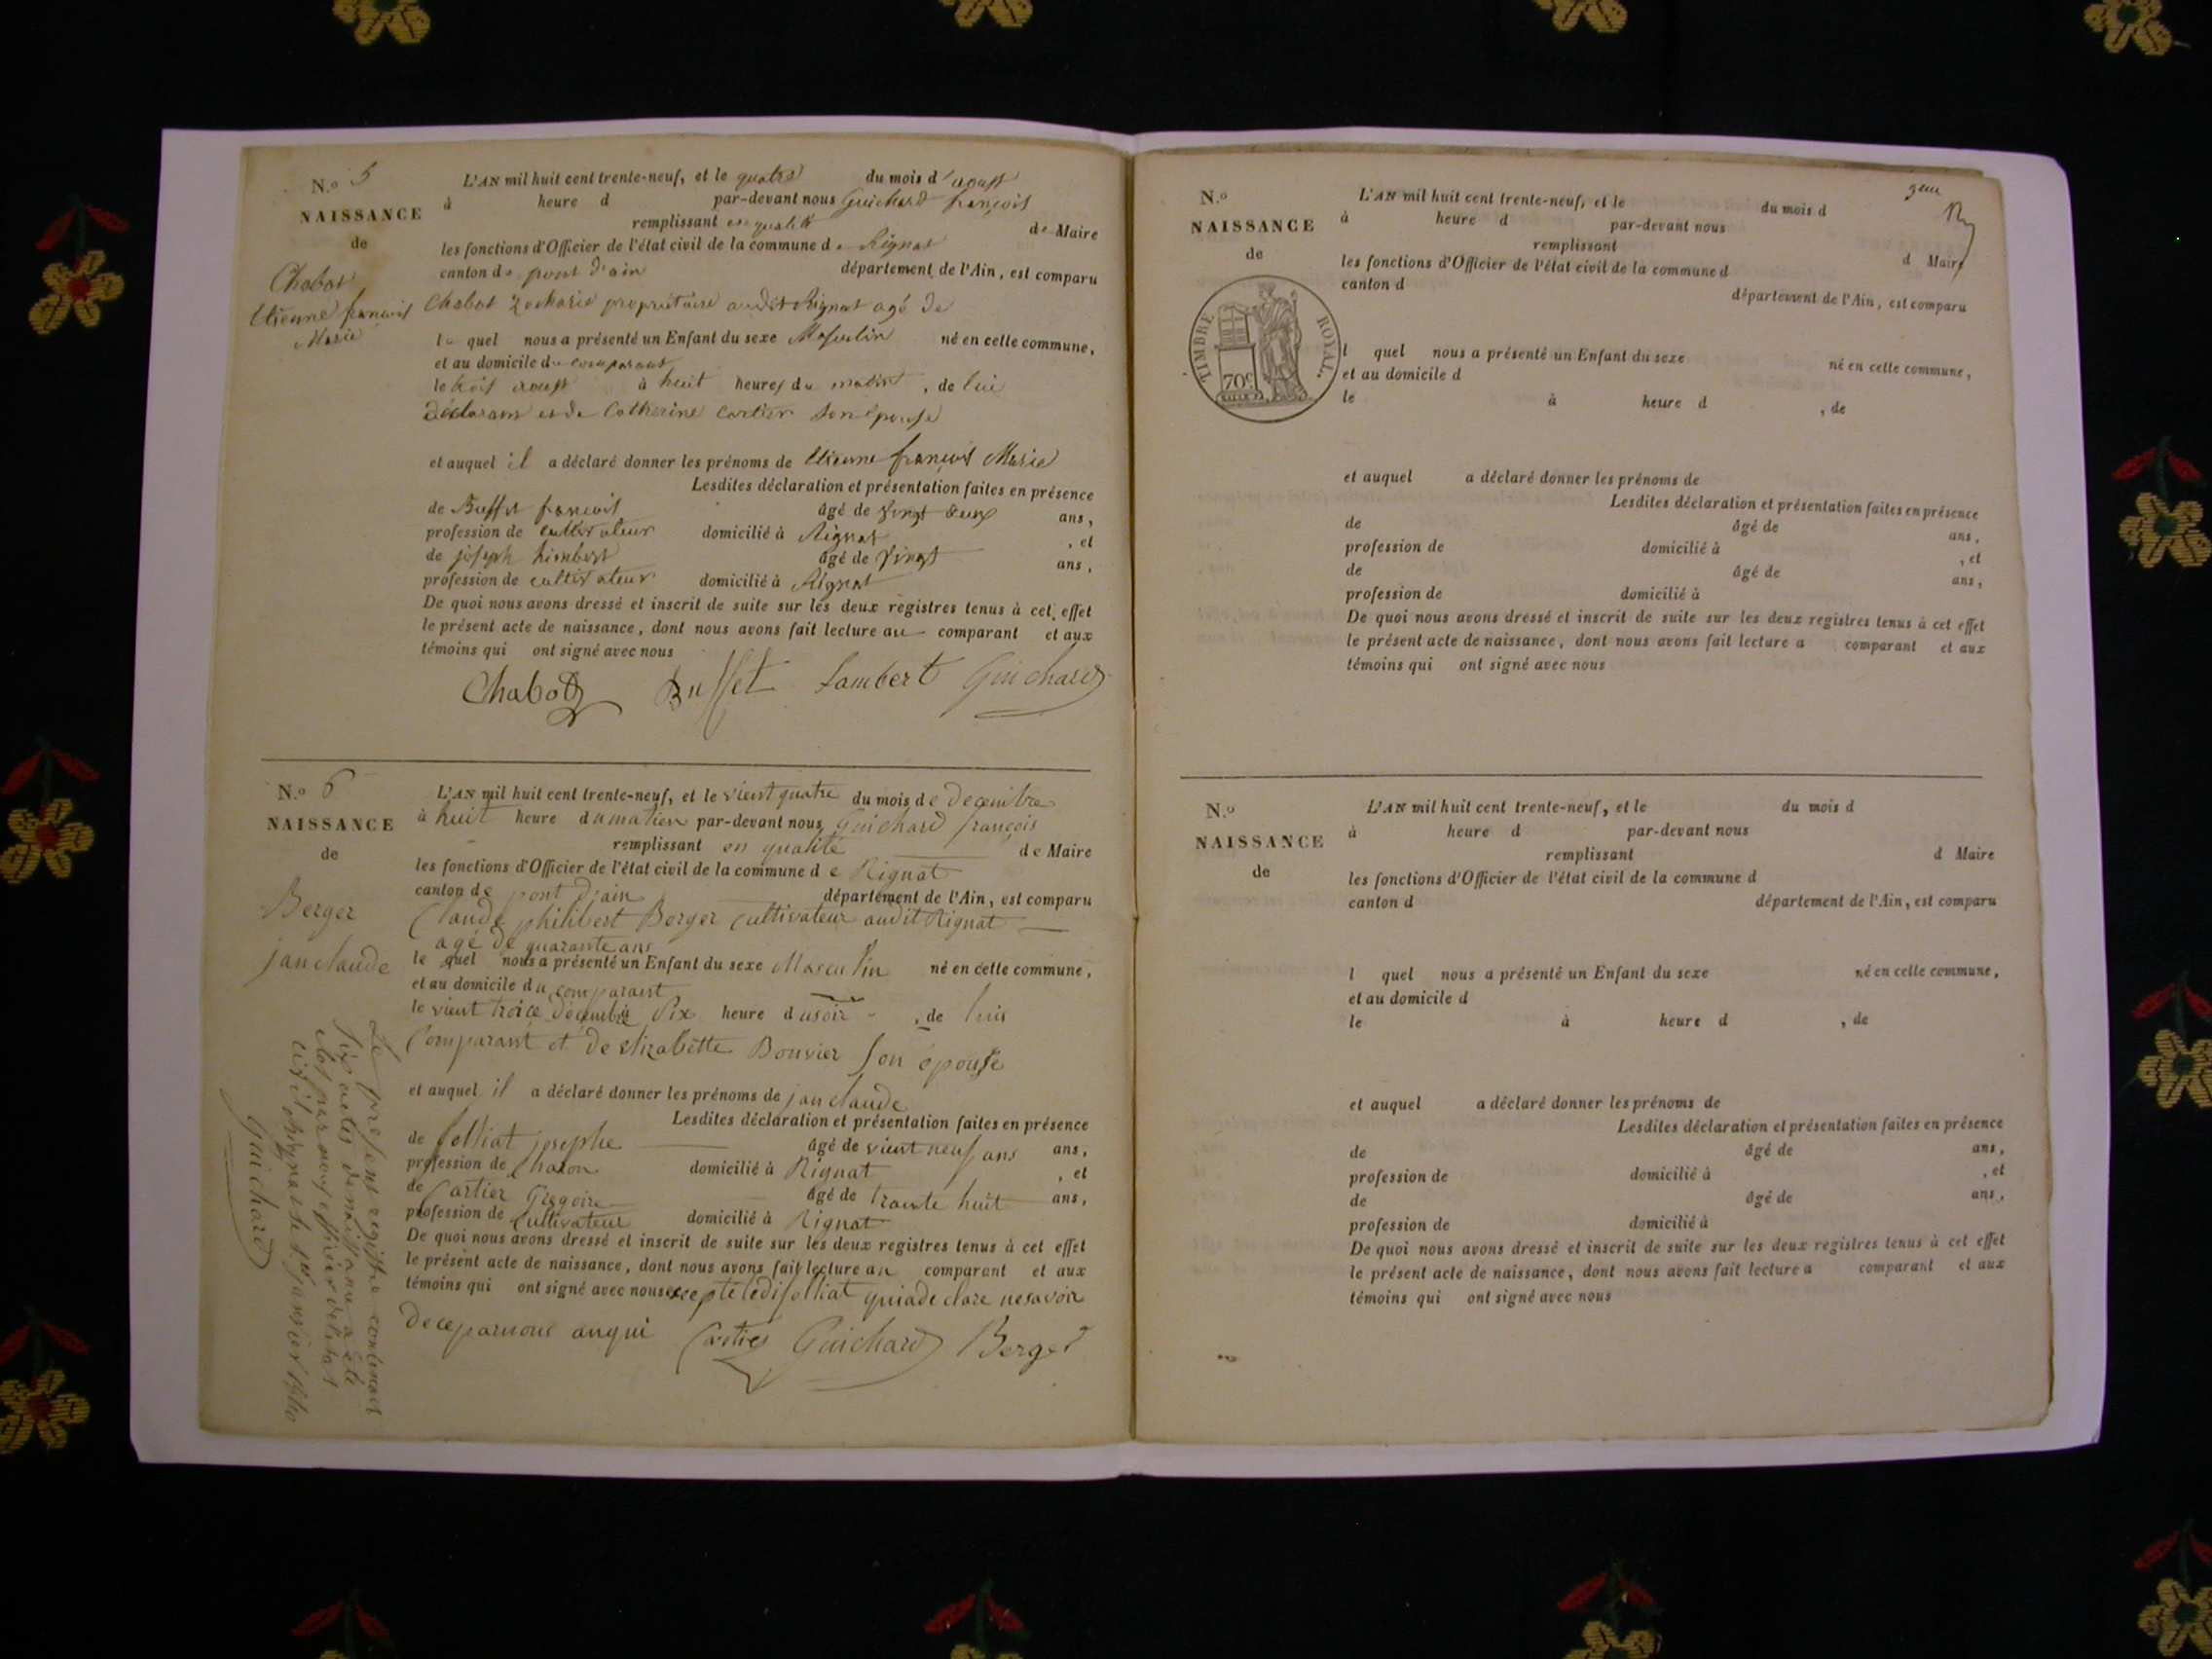 N.º 5
NAISSANCE
de
Chabot
Etienne françois
Marie
L'AN mil huit cent trente-neuf, et le quatre du mois d'aoust
à heure d par-devant nous Guichard françois
remplissant en qualité de Maire
les fonctions d'Officier de l'état civil de la commune de Rignat
canton de pont d'ain département de l'Ain, est comparu
Chabot Zacharie propriétaire audit Rignat agé de
le quel nous a présenté un Enfant du sexe Masculin né en cette commune,
et au domicile du comparant
le trois aoust à huit heures du matin, de lui
déclarant et de Catherine Cartier son épouse
et auquel il a déclaré donner les prénoms de Etienne françois Marie
Lesdites déclaration et présentation faites en présence
de Buffet françois âgé de vingt deux ans,
profession de cultivateur domicilié à Rignat, et
de joseph âgé de vingt ans,
profession de cultivateur domicilié à Rignat
De quoi nous avons dressé et inscrit de suite sur les deux registres tenus à cet effet
le présent acte de naissance, dont nous avons fait lecture au comparant et aux
témoins qui ont signé avec nous
Chabot Buffet Lambert Guichard
N.º 6
NAISSANCE
de
Berger
jan claude
L'AN mil huit cent trente-neuf, et le vient quatre du mois de decembre
à huit heure du matien par-devant nous Guichard françois
remplissant en qualité de Maire
les fonctions d'Officier de l'état civil de la commune de Rignat
canton de pont d'ain département de l'Ain, est comparu
Claude philibert Berger cultivateur audit Rignat
agé de quarante ans
le quel nous a présenté un Enfant du sexe Masculin né en cette commune,
et au domicile du comparant
le vient troice decembre à Dix heure du soir, de luis
Comparant et de elizabette Bouvier son épouse
et auquel il a déclaré donner les prénoms de jan claude
Lesdites déclaration et présentation faites en présence
de folliat josephe âgé de vient neuf ans ans,
profession de charon domicilié à Rignat, et
de Cartier Gregoire âgé de trante huit ans,
profession de cultivateur domicilié à Rignat
De quoi nous avons dressé et inscrit de suite sur les deux registres tenus à cet effet
le présent acte de naissance, dont nous avons fait lecture au comparant et aux
témoins qui ont signé avec nous excepté ledi folliat qui a declare ne savoir
de ce par nous anqui Cartier Guichard Berger
Le present registre contenant
Six actes de naissance a été
clos par nous officier de l'etat
civil à Rignat le 1er janvier 1840
Guichard
N.º
NAISSANCE
de
TIMBRE ROYAL.
70c
L'AN mil huit cent trente-neuf, et le du mois d
à heure d par-devant nous
remplissant d Maire
les fonctions d'Officier de l'état civil de la commune d
canton d département de l'Ain, est comparu
l quel nous a présenté un Enfant du sexe né en cette commune,
et au domicile d
le à heure d , de
et auquel a déclaré donner les prénoms de
Lesdites déclaration et présentation faites en présence
de âgé de ans,
profession de domicilié à , et
de âgé de ans,
profession de domicilié à
De quoi nous avons dressé et inscrit de suite sur les deux registres tenus à cet effet
le présent acte de naissance, dont nous avons fait lecture a comparant et aux
témoins qui ont signé avec nous
N.º
NAISSANCE
de
L'AN mil huit cent trente-neuf, et le du mois d
à heure d par-devant nous
remplissant d Maire
les fonctions d'Officier de l'état civil de la commune d
canton d département de l'Ain, est comparu
l quel nous a présenté un Enfant du sexe né en cette commune,
et au domicile d
le à heure d , de
et auquel a déclaré donner les prénoms de
Lesdites déclaration et présentation faites en présence
de âgé de ans,
profession de domicilié à , et
de âgé de ans,
profession de domicilié à
De quoi nous avons dressé et inscrit de suite sur les deux registres tenus à cet effet
le présent acte de naissance, dont nous avons fait lecture a comparant et aux
témoins qui ont signé avec nous